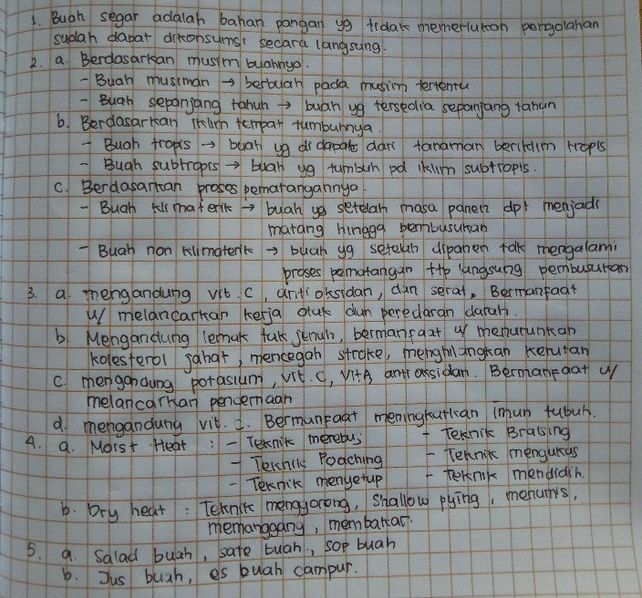 1. Buah segar adalah bahan pangan yg tidak memerlukan pengolahan
sudah dapat dikonsumsi secara langsung.
2. a. Berdasarkan musim buahnya.
- Buah musiman → berbuah pada musim tertentu
- Buah sepanjang tahun → buah yg tersedia sepanjang tahun
b. Berdasarkan iklim tempat tumbuhnya.
- Buah tropis → buah yg di dapat dari tanaman beriklim tropis
- Buah subtropis → buah yg tumbuh pd iklim subtropis.
c. Berdasarkan proses pematangannya.
- Buah klimaterik → buah yg setelah masa panen dpt menjadi
matang hingga pembusukan
- Buah non klimaterik → buah yg setelah dipanen tdk mengalami
proses pematangan ttp langsung pembusukan
3. a. mengandung vit. C, antioksidan, dan serat. Bermanfaat
u/ melancarkan kerja otak dan peredaran darah.
b. Mengandung lemak tak jenuh, bermanfaat u/ menurunkan
kolesterol jahat, mencegah stroke, menghilangkan kerutan
c. mengandung potasium, vit. C, vit A, anti oksidan. Bermanfaat u/
melancarkan pencernaan
d. mengandung vit. C. Bermanfaat meningkatkan imun tubuh.
4. a. Moist Heat : - Teknik merebus - Teknik Braising
- Teknik Poaching - Teknik mengukus
- Teknik menyetup - Teknik mendidih
b. Dry heat : Teknik menggoreng, shallow pying, menumis,
memanggang, membakar.
5. a. Salad buah, sate buah, sop buah
b. Jus buah, es buah campur.